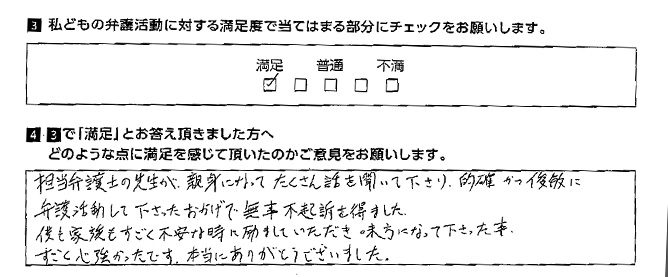 3 私どもの弁護活動に対する満足度で当てはまる部分にチェックをお願いします。
満足 普通 不満
4 3で「満足」とお答え頂きました方へ
どのような点に満足を感じて頂いたのかご意見をお願いします。
担当弁護士の先生が、親身になって たくさん話を聞いて下さり、的確かつ俊敏に
弁護活動して下さったおかげで無事不起訴を得ました。
僕も家族もすごく不安な時に励ましていただき 味方になって下さった事、
すごく心強かったです。本当にありがとうございました。